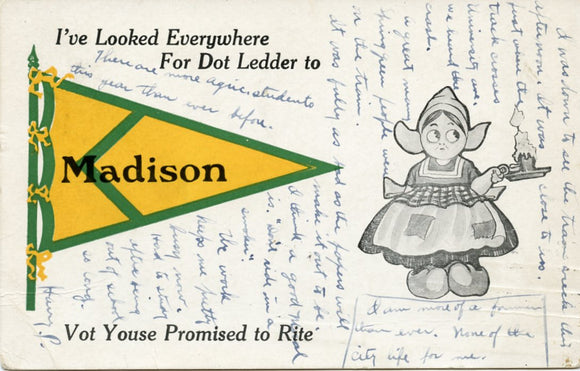 I've Looked Everywhere
For Dot Ledder to
There are more agric. students
this year than ever before.
Madison
Vot Youse Promised to Rite
I was down to see the train wreck this
afternoon. it was close to us.
just where the
track crosses
University ave.
we heard the
crash.
a great many
people were
on the train.
it was fully as bad as the papers will
make it out to be
I think a good moral
is: "Don't ride in a
smoker"
The work
keeps me pretty
busy now.
Hard to study
after being
out of school
so long.
Henry P.
I am more of a
than ever. None of the
city life for me.